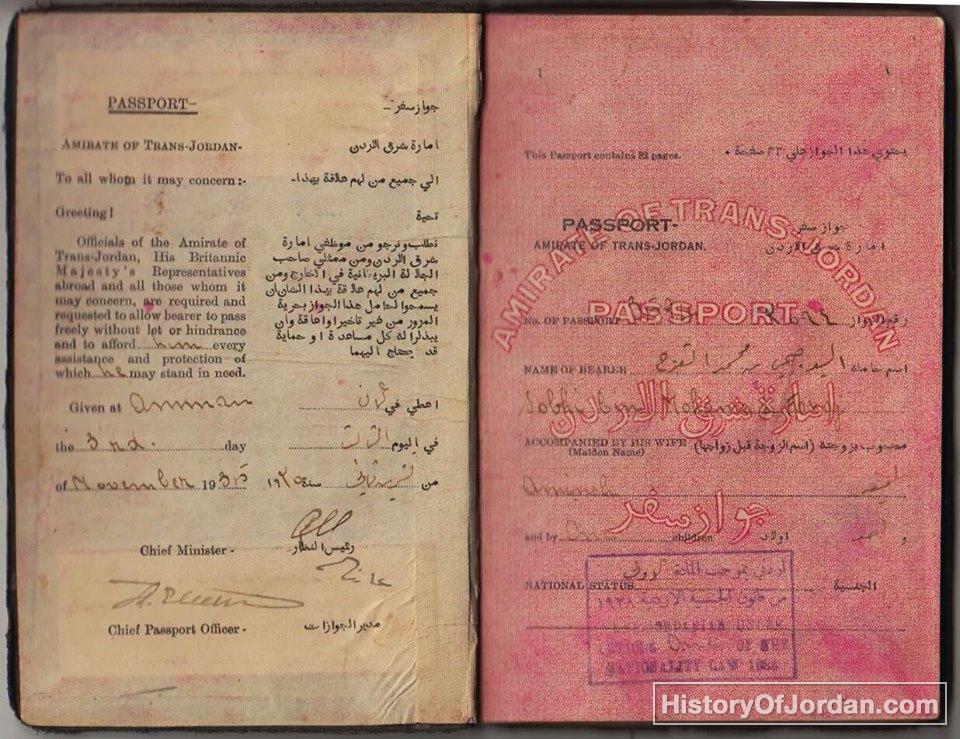 PASSPORT-
جواز سفر -
AMIRATE OF TRANS-JORDAN-
امارة شرق الاردن
To all whom it may concern:-
الي جميع من لهم علاقة بهذا-
Greeting!
تحية
Officials of the Amirate of
Trans-Jordan, His Britannic
Majesty's Representatives
abroad and all those whom it
may concern, are required and
requested to allow bearer to pass
freely without let or hindrance
and to afford him every
assistance and protection of
which he may stand in need.
نطلب ونرجو من موظفي امارة
شرق الاردن ومن ممثلي صاحب
الجلالة البريطانية في الخارج ومن
جميع من لهم علاقة بهذا الشان ان
يسمحوا لحامل هذا الجواز بحرية
المرور من غير تاخير او اعاقة وان
يبذلوا له كل مساعدة او حماية
قد يحتاج اليهما
Given at Amman
اعطي في عمان
the 3rd. day
في اليوم الثالث
of November 1935
من تشرين ثاني سنة ١٩٣٥
Chief Minister -
رئيس النظار
Chief Passport Officer -
مدير الجوازات
1
١
This Passport contains 32 pages.
يحتوي هذا الجواز علي ٣٢ صفحة ٠
AMIRATE OF TRANS-JORDAN
PASSPORT
PASSPORT-
جواز سفر
AMIRATE OF TRANS-JORDAN.
امارة شرق الاردن
No. OF PASSPORT
رقم الجواز
NAME OF BEARER
السيد صبحي بن محمد
اسم حامله
Sobhi
امارة شرق الاردن
ACCOMPANIED BY HIS WIFE
(Maiden Name)
مصحوب بزوجته (اسم الزوجة قبل زواجها)
Amineh
جواز سفر
and by children
و اولاد
NATIONAL STATUS
الجنسية
اردني بموجب المادة الاولى
من قانون الجنسية ١٩٢٨
OF THE
NATIONALITY LAW 1928
HistoryOfJordan.com